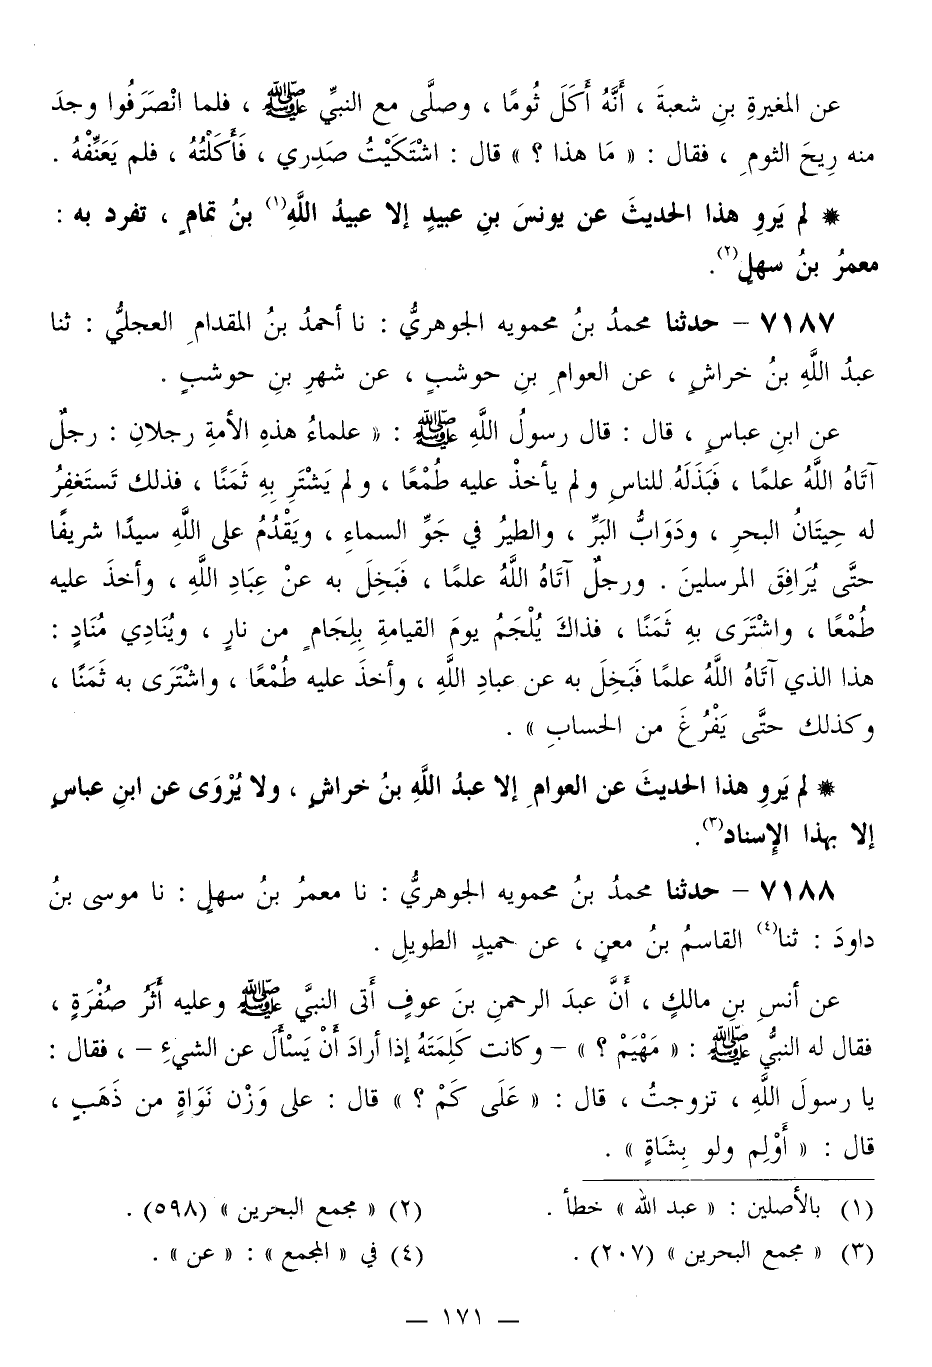 عن المغيرةِ بنِ شعبةَ ، أَنَّهُ أَكَلَ ثُومًا ، وصلَّى مع النبيِّ ﷺ ، فلما انْصَرَفُوا وجدَ
منه رِيحَ الثومِ ، فقال : « مَا هذا ؟ » قال : اشْتَكَيْتُ صَدِري ، فَأَكَلْتُهُ ، فلم يَعَنِّفْهُ .
* لم يَروِ هذا الحديثَ عن يونسَ بنِ عبيدٍ إلا عبيدُ اللَّهِ(١) بنُ تمامٍ ، تفرد به :
معمرُ بنُ سهلٍ(٢).
٧١٨٧ – حدثنا محمدُ بنُ محمويه الجوهريُّ : نا أحمدُ بنُ المقدامِ العجليُّ : ثنا
عبدُ اللَّهِ بنُ خراشٍ ، عن العوامِ بنِ حوشبٍ ، عن شهرِ بنِ حوشبٍ .
عن ابنِ عباسٍ ، قال : قال رسولُ اللَّهِ ﷺ : « علماءُ هذهِ الأمةِ رجلانِ : رجلٌ
آتَاهُ اللَّهُ علمًا ، فَبَذَلَهُ للناسِ ولم يأخذْ عليه طُمْعًا ، ولم يَشْتَرِ بِهِ ثَمَنًا ، فذلك تَستَغفِرُ
له حِيتَانُ البحرِ ، ودَوَابُّ البَرِّ ، والطيرُ في جَوِّ السماءِ ، ويَقْدُمُ على اللَّهِ سيدًا شريفًا
حتَّى يُرَافِقَ المرسلينَ . ورجلٌ آتَاهُ اللَّهُ علمًا ، فَبَخِلَ به عنْ عِبَادِ اللَّهِ ، وأخذَ عليه
طُمْعًا ، واشْتَرَى بهِ ثَمَنًا ، فذاكَ يُلْجَمُ يومَ القيامةِ بِلِجَامٍ من نارٍ ، ويُنَادِي مُنَادٍ :
هذا الذي آتَاهُ اللَّهُ علمًا فَبَخِلَ به عن عبادِ اللَّهِ ، وأخذَ عليه طُمْعًا ، واشْتَرَى به ثَمَنًا ،
وكذلك حتَّى يَفْرُغَ من الحسابِ » .
* لم يَروِ هذا الحديثَ عن العوامِ إلا عبدُ اللَّهِ بنُ خراشٍ ، ولا يُرْوَى عن ابنِ عباسٍ
إلا بهذا الإسناد(٣).
٧١٨٨ – حدثنا محمدُ بنُ محمويه الجوهريُّ : نا معمرُ بنُ سهلٍ : نا موسى بنُ
داودَ : ثنا(٤) القاسمُ بنُ معنٍ ، عن حميدٍ الطويلِ .
عن أنسِ بنِ مالكٍ ، أَنَّ عبدَ الرحمنِ بنَ عوفٍ أَتى النبيَّ ﷺ وعليه أَثَرُ صُفْرَةٍ ،
فقال له النبيُّ ﷺ : « مَهْيَمْ ؟ » – وكانت كَلِمَتَهُ إذا أرادَ أَنْ يَسْأَلَ عن الشيءِ – ، فقال :
يا رسولَ اللَّهِ ، تزوجتُ ، قال : « عَلَى كَمْ ؟ » قال : على وَزْن نَوَاةٍ من ذَهَبٍ ،
قال : « أَوْلِم ولو بِشَاةٍ » .
(١) بالأصلين : « عبد الله » خطأ .
(٢) « مجمع البحرين » (٥٩٨) .
(٣) « مجمع البحرين » (٢٠٧) .
(٤) في « المجمع » : « عن » .
— ١٧١ —